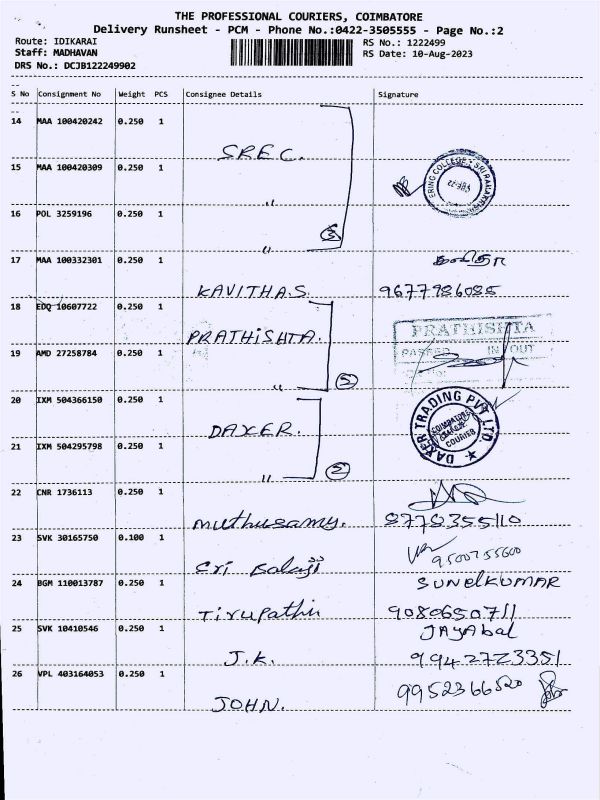 THE PROFESSIONAL COURIERS, COIMBATORE
Delivery Runsheet - PCM - Phone No.:0422-3505555 - Page No.:2
Route: IDIKARAI
Staff: MADHAVAN
DRS No.: DCJB122249902
RS No.: 1222499
RS Date: 10-Aug-2023
S No Consignment No Weight PCS Consignee Details Signature
14 MAA 100420242 0.250 1
SREC.
15 MAA 100420309 0.250 1
ERING COLLEGE * SRI RAMAKRISHNA
"
16 POL 3259196 0.250 1
"
17 MAA 100332301 0.250 1
கவிதா
KAVITHA.S. 9677986085
18 EDQ 10607722 0.250 1
PRATHISHTA.
PRATHISHTA
19 AMD 27258784 0.250 1
PASSED IN OUT
"
20 IXM 504366150 0.250 1
DAXER.
DAXER TRADING PVT LTD.
COIMBATORE
COURIER
21 IXM 504295798 0.250 1
"
22 CNR 1736113 0.250 1
muthusamy. 8778355110
23 SVK 30165750 0.100 1
Sri Balaji 9500755600
24 BGM 110013787 0.250 1
SUNELKUMAR
Tirupathi 9080650711
25 SVK 10410546 0.250 1
JAYABAL
J.K. 9942723351
26 VPL 403164053 0.250 1
9952366520
JOHN.